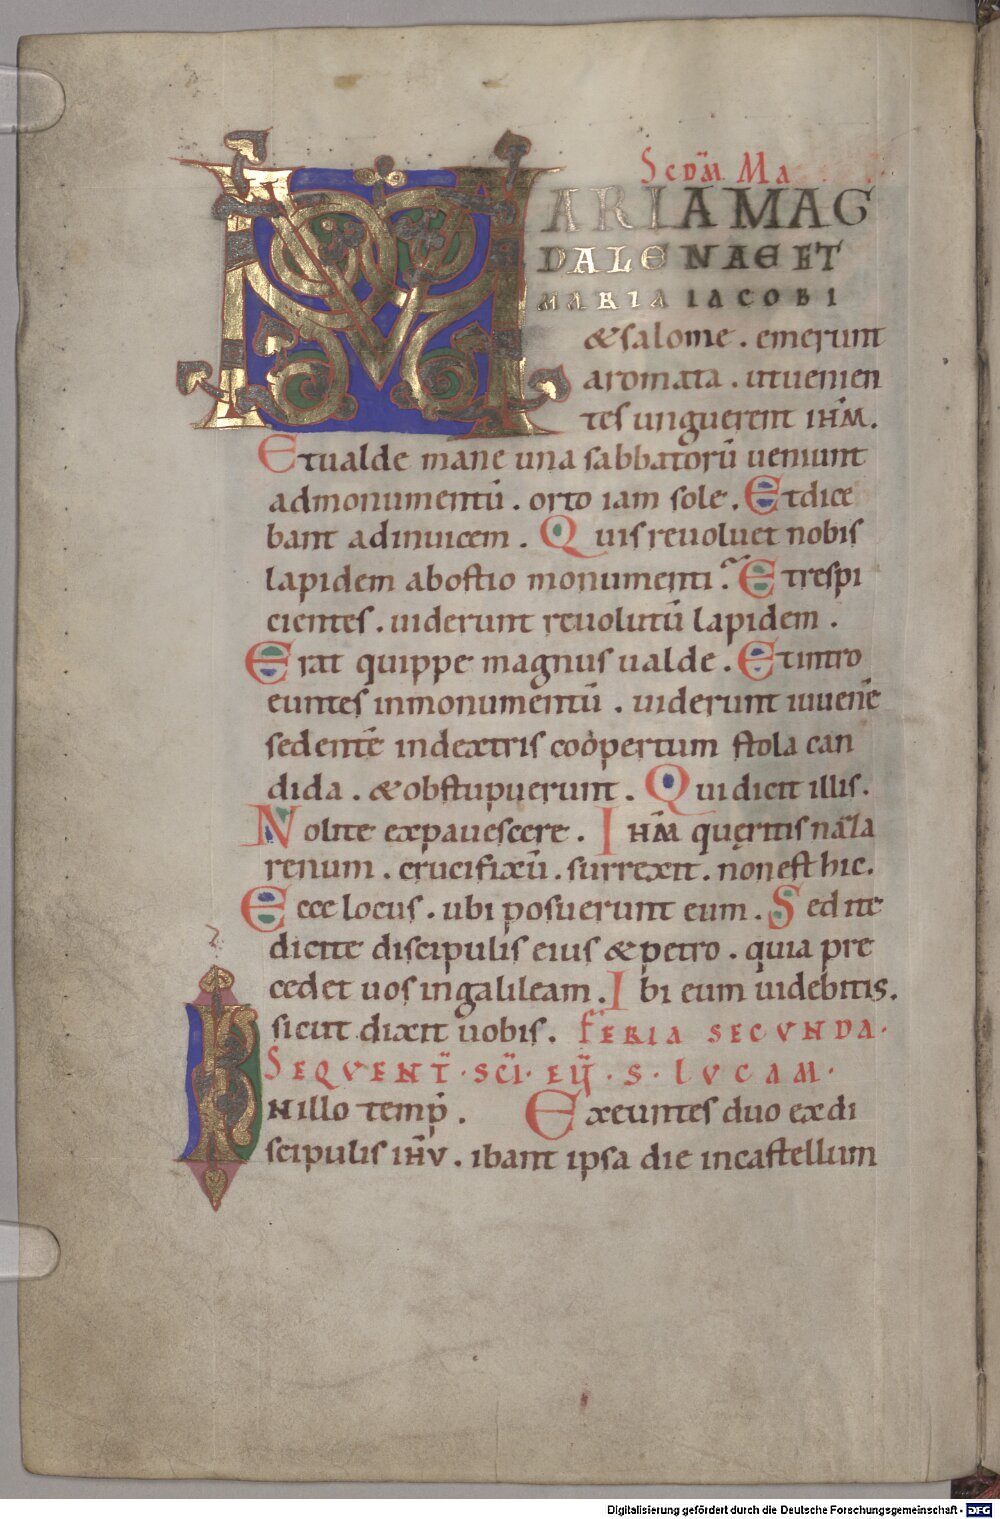 Scdm̄ Ma
MARIA MAG
DALENAE ET
MARIA IACOBI
&salome. emerunt
aromata. utuenien
tes unguerent ihm̄.
Etualde mane una sabbatorū ueniunt
admonumentū. orto iam sole. Etdice
bant adinuicem. Quis reuoluet nobis
lapidem abostio monumenti? Etrespi
cientes. uiderunt reuolutū lapidem.
Erat quippe magnus ualde. Etintro
euntes inmonumentū. uiderunt iuuenē
sedentē indextris coopertum stola can
dida. &obstupuerunt. Qui dicit illis.
Nolite expauescere. Ihm̄ quęritis naza
renum. crucifixū. surrexit. nonest hic.
Ecce locus. ubi posuerunt eum. Sed ite
dicite discipulis eius &petro. quia pre
cedet uos ingalileam. Ibi eum uidebitis.
sicut dixit uobis. Feria secvnda.
Seqvent̄. scī. eṽ. s. lvcam.
INillo temp̄. Exeuntes duo exdi
scipulis ih̄v. ibant ipsa die incastellum
Digitalisierung gefördert durch die Deutsche Forschungsgemeinschaft - DFG